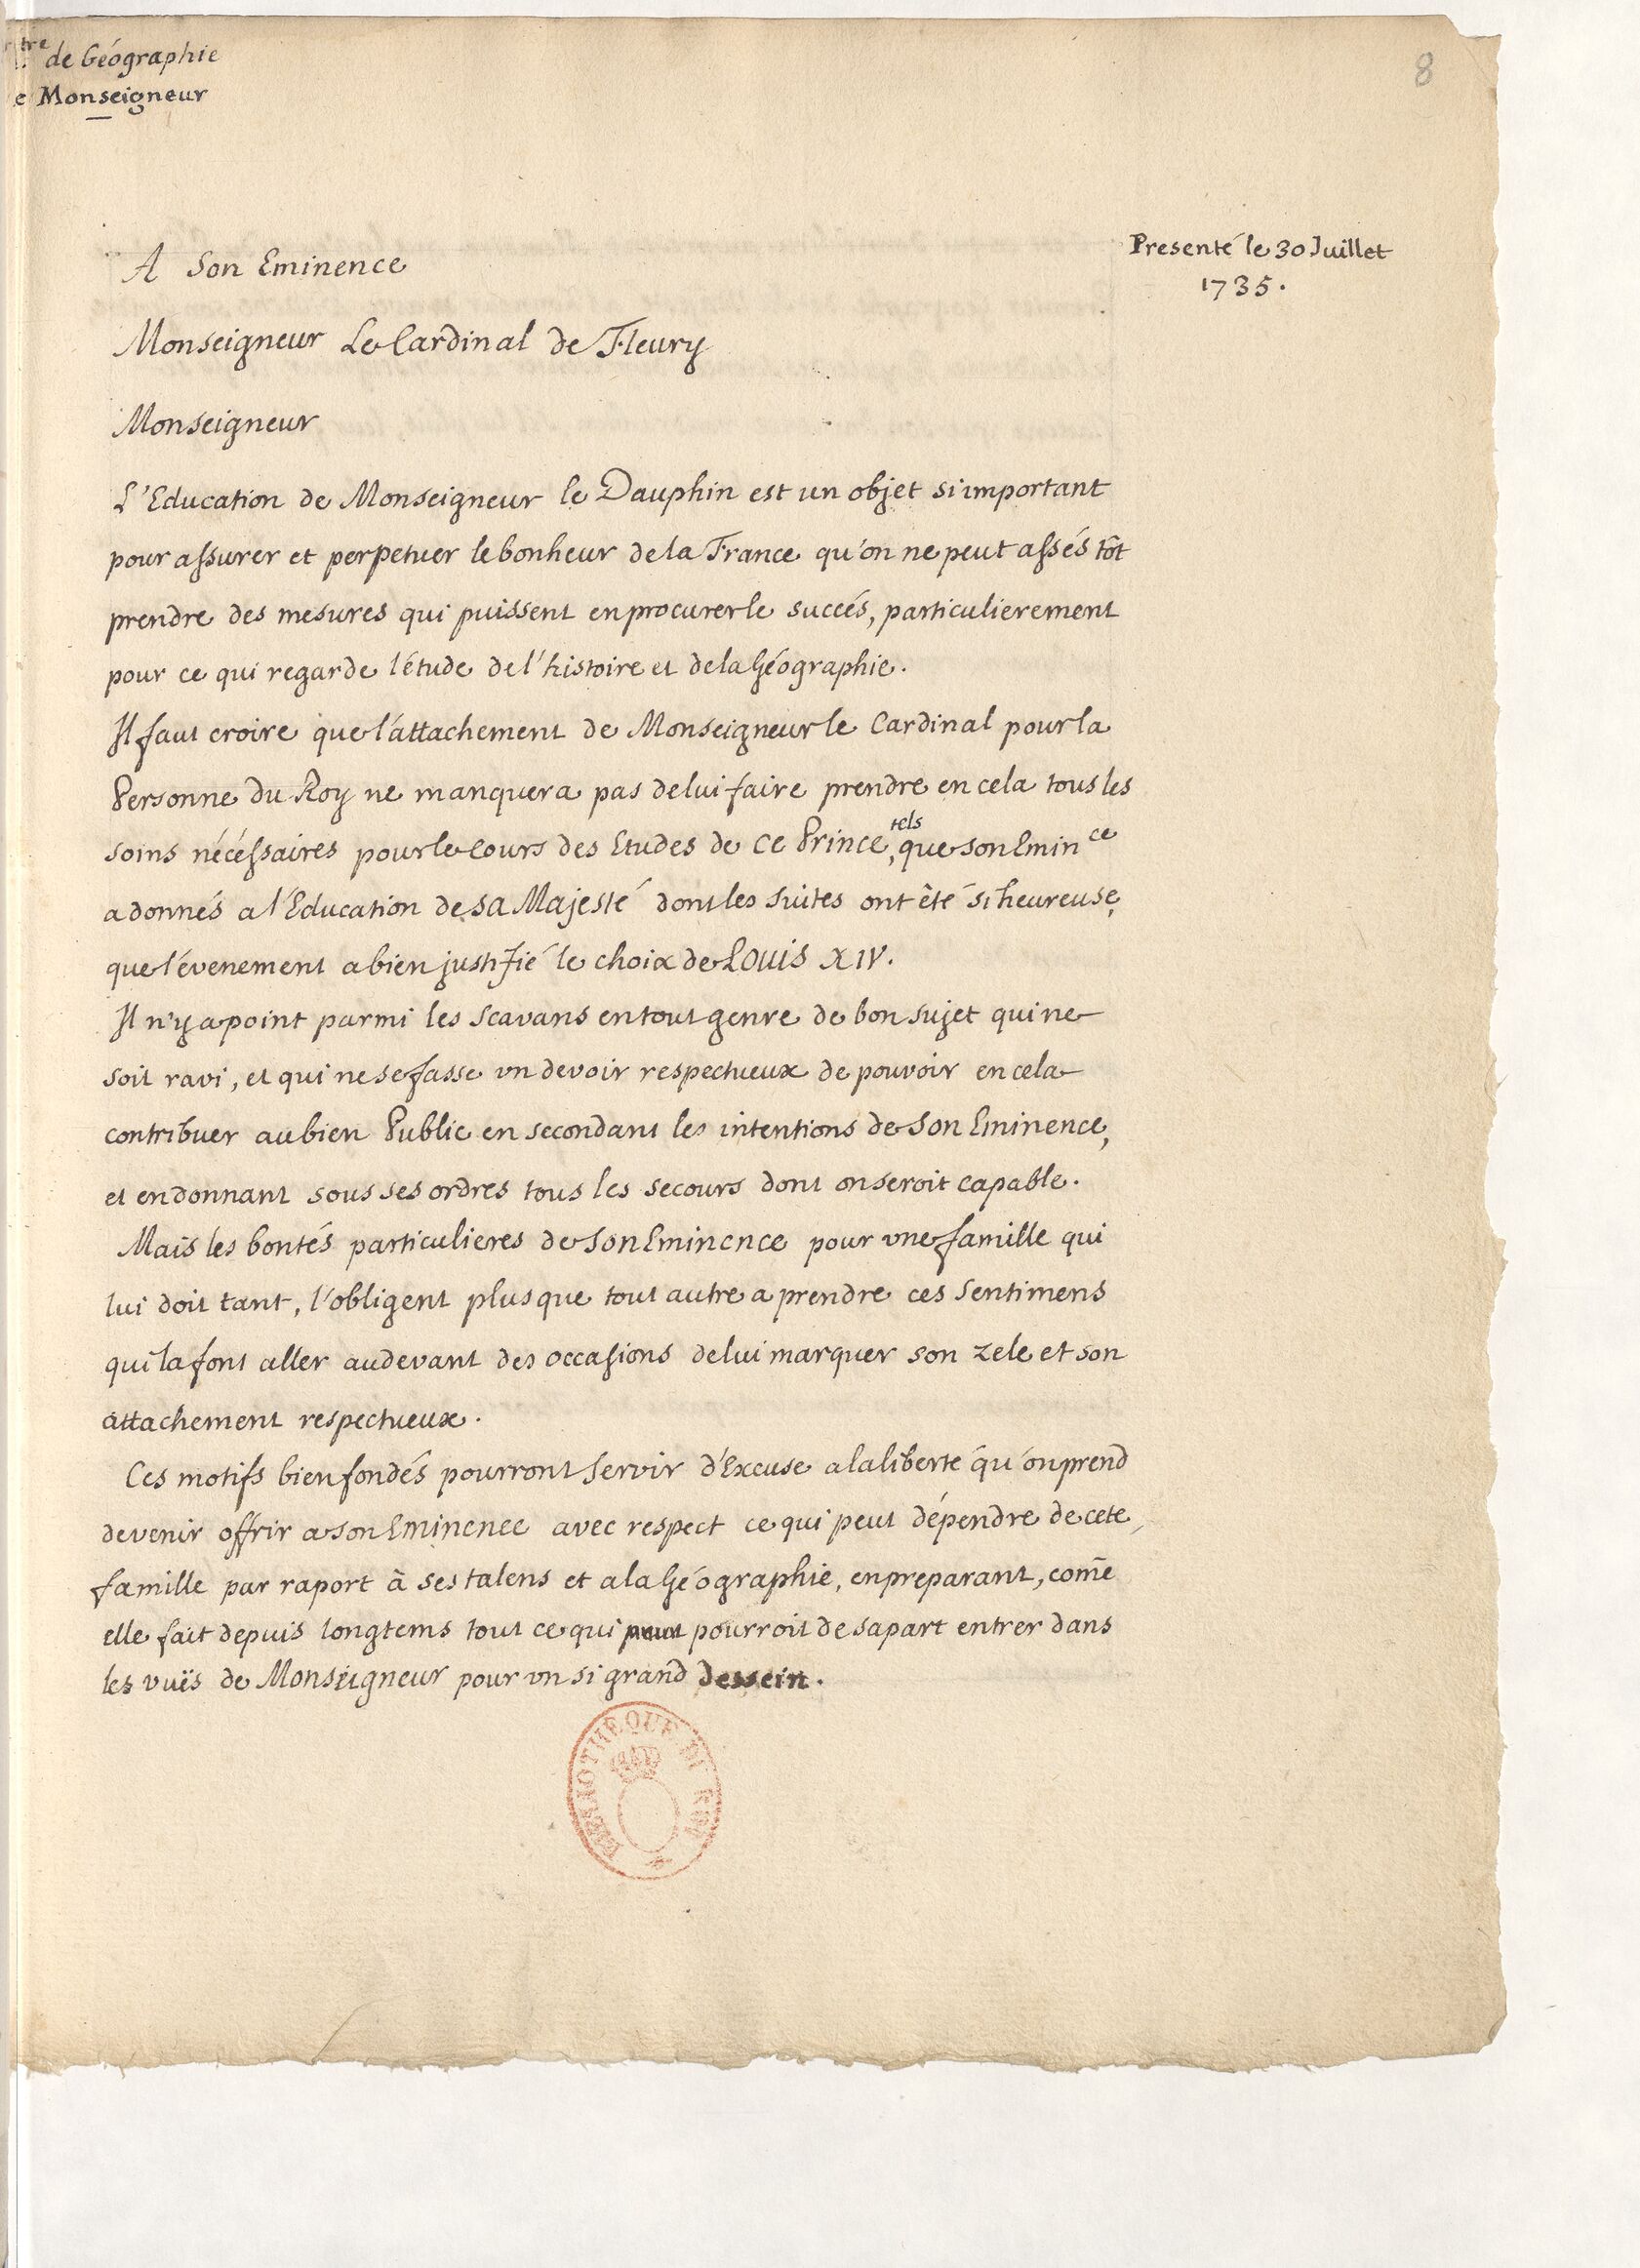 tre de Géographie
e Monseigneur
8
Presenté le 30 Juillet
1735.
A Son Eminence
Monseigneur Le Cardinal de Fleury
Monseigneur
L'Education de Monseigneur le Dauphin est un objet si important
pour assurer et perpetuer le bonheur de la France qu'on ne peut assés tôt
prendre des mesures qui puissent en procurer le succés, particulierement
pour ce qui regarde l'étude de l'histoire et de la Géographie.
Il faut croire que l'attachement de Monseigneur le Cardinal pour la
Personne du Roy ne manquera pas de lui faire prendre en cela tous les
soins nécéssaires pour le cours des Etudes de ce Prince, tels que son Emin ce
a donnés a l'Education de sa Majesté dont les suites ont êté si heureuse,
que l'évenement a bien justifié le choix de LOUIS XIV.
Il n'y a point parmi les scavans en tout genre de bon sujet qui ne
soit ravi, et qui ne se fasse vn devoir respectueux de pouvoir en cela
contribuer au bien Public en secondant les intentions de Son Eminence,
et en donnant sous ses ordres tous les secours dont on seroit capable.
Mais les bontés particulieres de Son Eminence pour vne famille qui
lui doit tant, l'obligent plus que tout autre a prendre ces Sentimens
qui la font aller audevant des occasions de lui marquer son zele et son
attachement respectueux.
Ces motifs bien fondés pourront servir d'Excuse a la liberté qu'on prend
de venir offrir a son Eminence avec respect ce qui peut dépendre de cete
famille par raport à ses talens et a la Géographie, en preparant, com̃e
elle fait depuis longtems tout ce qui peut pourroit de sa part entrer dans
les vuës de Monseigneur pour vn si grand dessein.
BIBLIOTHEQUE DU ROI